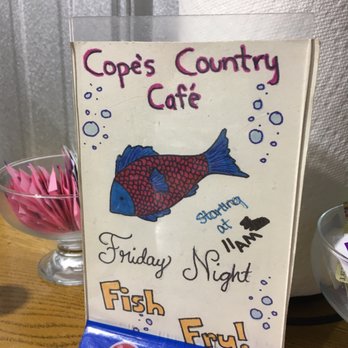 Cope's Country
Café
Starting
at
11AM
Friday Night
Fish
Fry!